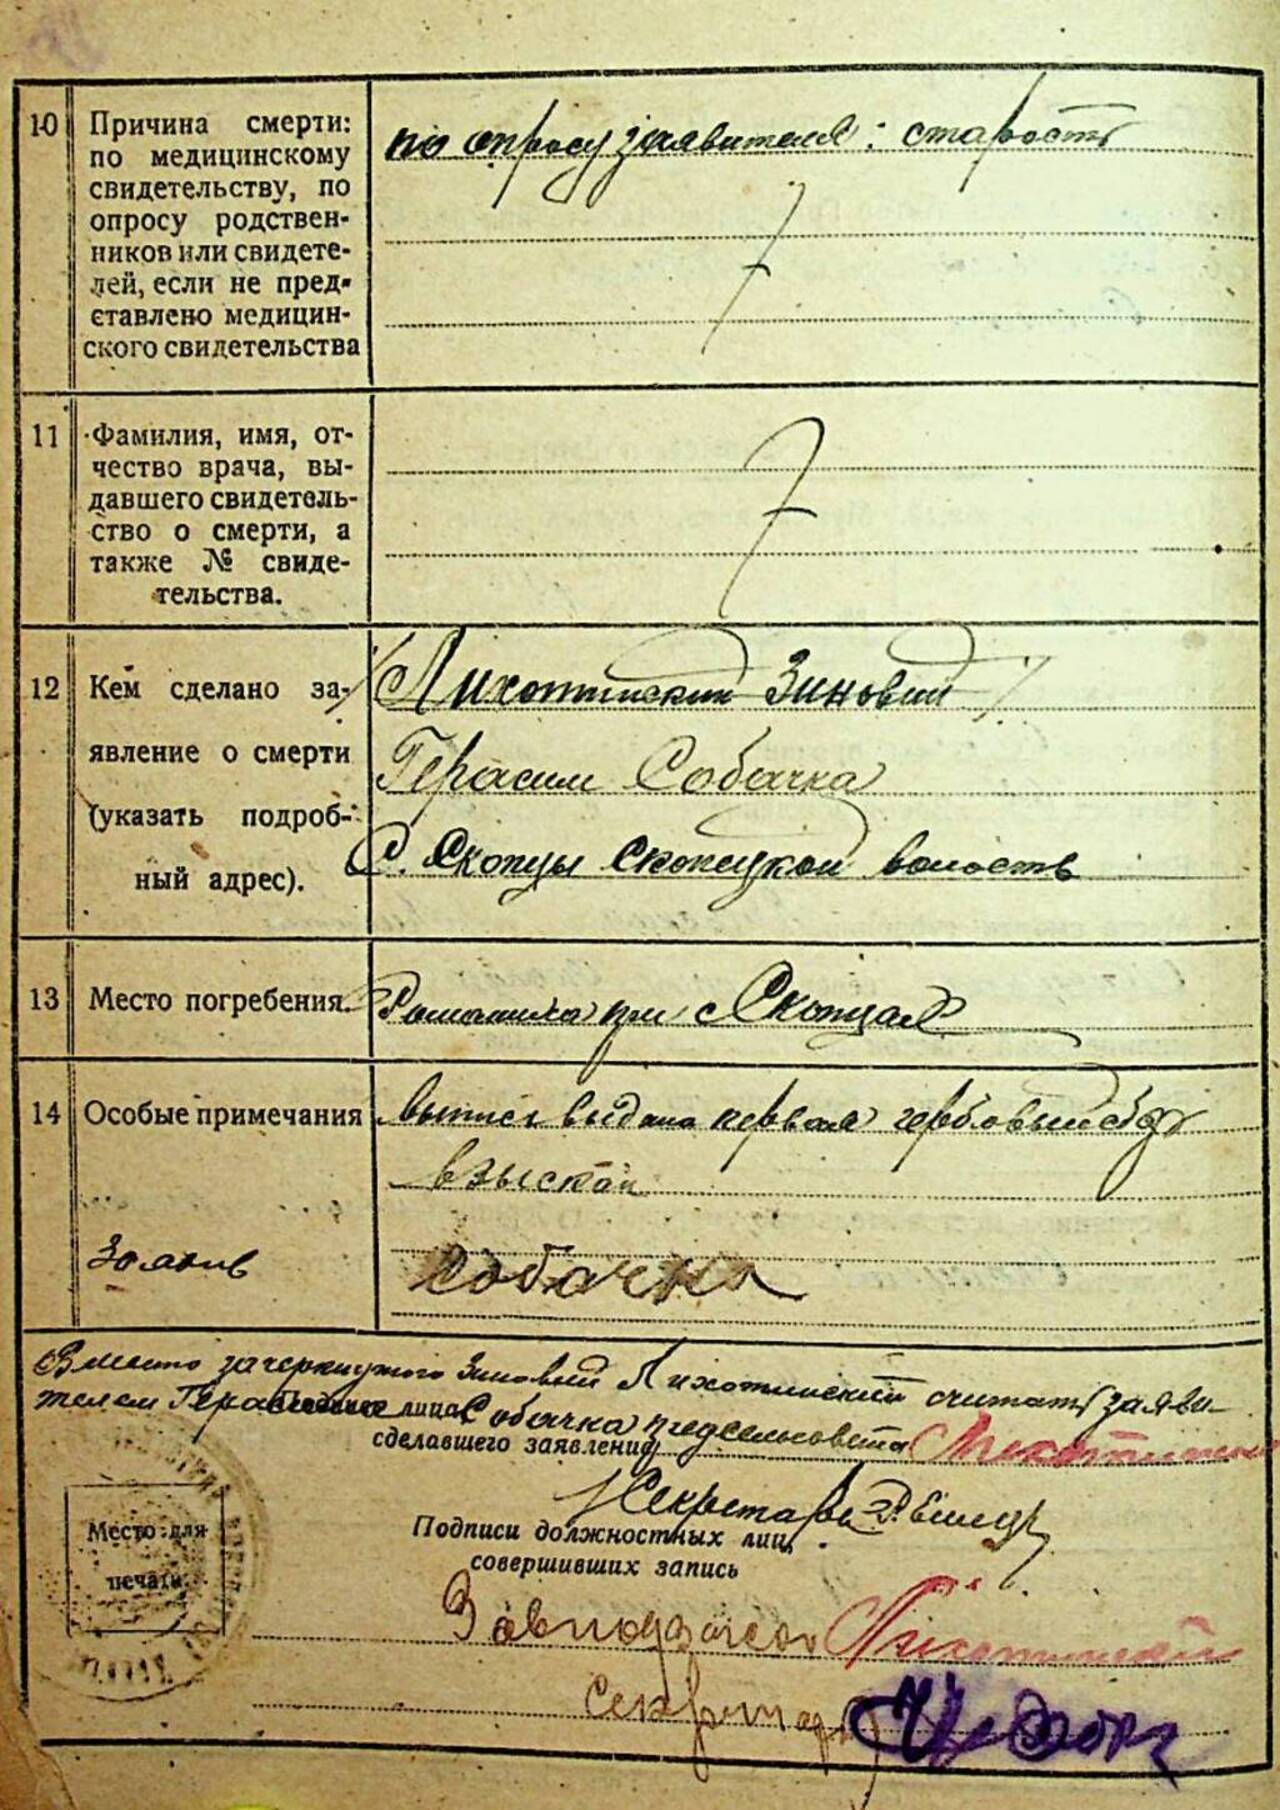 10 Причина смерти:
по медицинскому
свидетельству, по
опросу родствен-
ников или свидете-
лей, если не пред-
ставлено медицин-
ского свидетельства
по опросу заявителя: старость
11 Фамилия, имя, от-
чество врача, вы-
давшего свидетель-
ство о смерти, а
также № свиде-
тельства.
12 Кем сделано за-
явление о смерти
(указать подроб-
ный адрес).
Лихотинский Зиновий
Герасим Собачка
С. Скопцы Скопецкой волость
13 Место погребения.
при с Скопцах
14 Особые примечания
выпись выдана первая гербовый сбор
взыскан
Заявив
Собачка
Вместо зачеркнутого Зиновий Лихотинский считать заяви-
телем Герасим Собачка предсельсовета Лихотинский
лица
сделавшего заявление
Секретарь
Подписи должностных лиц,
совершивших запись
Место для
печати.
Завподзагсом Лихотинский
Секретарь